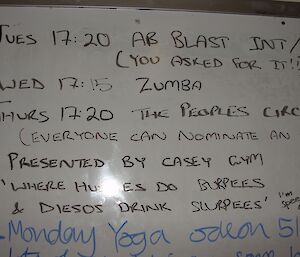 TUES 17:20 AB BLAST INT/
(YOU ASKED FOR IT!!
WED 17:15 ZUMBA
THURS 17:20 THE PEOPLES CIRC
(EVERYONE CAN NOMINATE AN
PRESENTED BY CASEY GYM
'WHERE HUSSIES DO BURPEES
& DIESOS DRINK SLURPEES' I'm
-Monday Yoga odeon 51